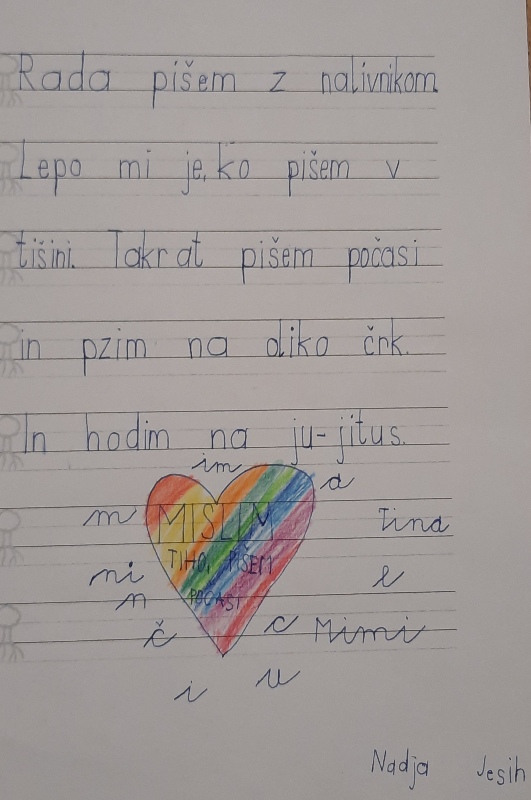 Rada pišem z nalivnikom.
Lepo mi je, ko pišem v
tišini. Takrat pišem počasi
in pzim na oliko črk.
In hodim na ju-jitus.
im
a
m
MISLIM
Tina
TIHO, PIŠEM
ni
e
n
POČASI
č
c
Mimi
i
u
Nadja Jesih